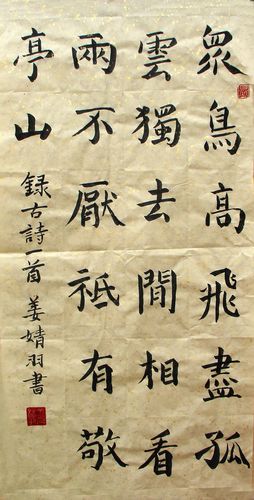 眾鳥高飛盡孤
雲獨去閒相看
兩不厭祗有敬
亭山
録古詩一首 姜婧羽書